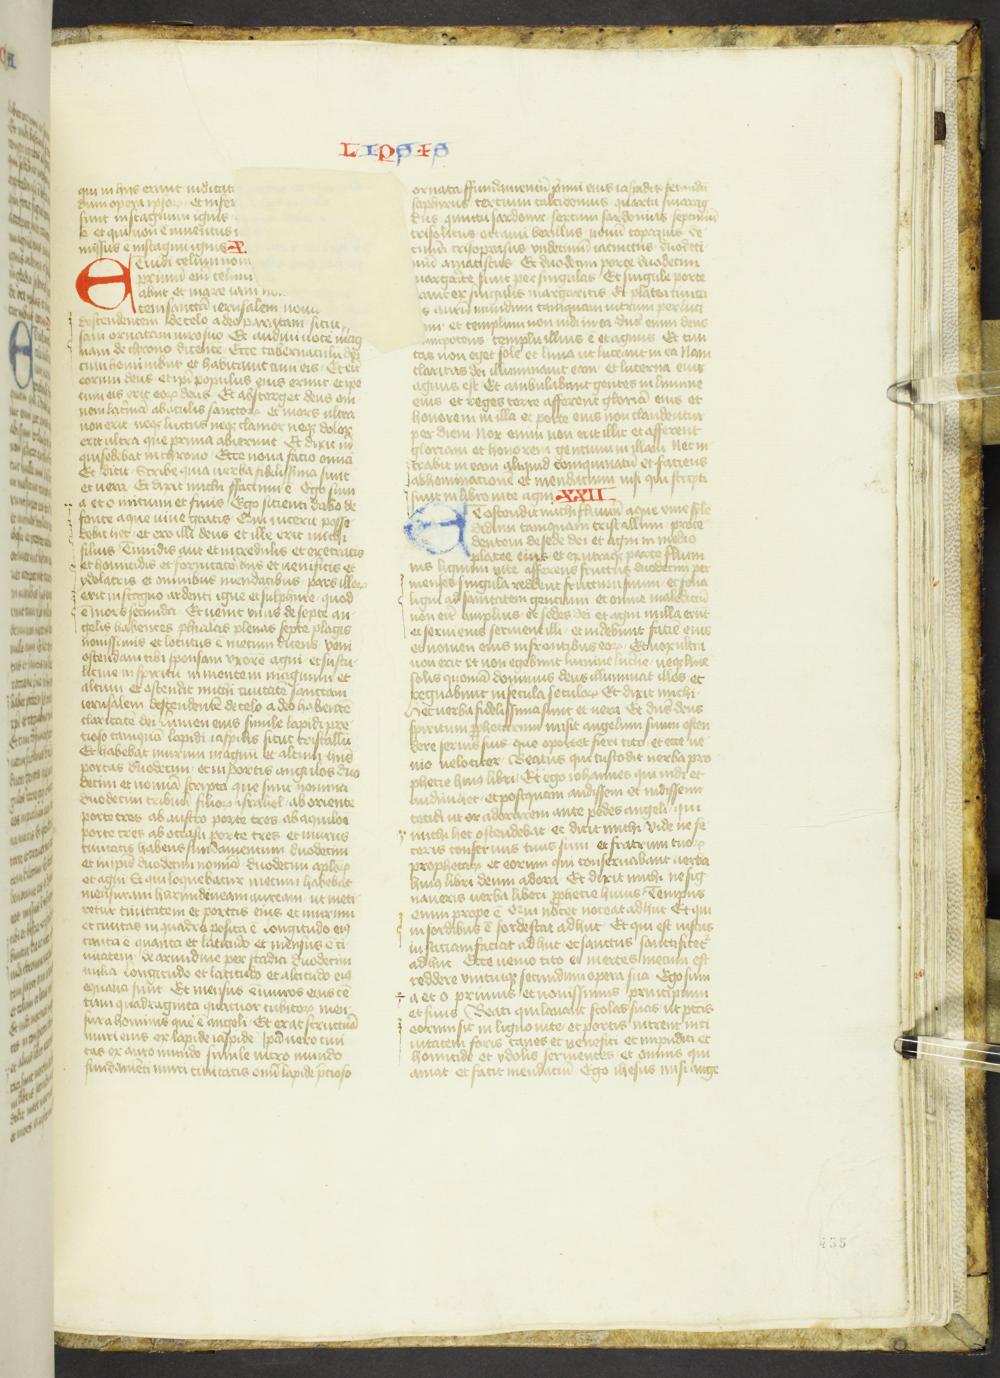 LIPSIS
qui in hijs erant iudicati
dum opera ipsoꝝ et infer
sunt in stagnum ignis
& et qui non e inuentus i
missus e in stagnū ignis
Et uidi celum nou
primū eni celum
abijt et mare iam no
tem sanctā ierusalem nouā
descendentem de celo a deo paratam sicut
sam ornatam uiro suo Et audiui uocē mag
nam de throno dicente Ecce tabernaculū dei
cum hominibus et habitauit cum eis Et erit
eorum deus et ipi populus eius erunt et ipe
cum eis erit eoꝝ deus Et absterget deus om
nem lacrimā ab oculis sanctoꝝ et mors ultra
non erit neqꝫ luctus neqꝫ clamor neqꝫ dolor
erit ultra que prima abierunt Et dixit
qui sedebat in throno Ecce noua facio omnia
Et dicit Scribe quia uerba fidelissima sunt
et uera Et dixit michi ffactum ē Ego sum
a et o initium et finis Ego sicienti dabo de
fonte aque uiue gratis Qui uicerit posse
debit hec et ero illi deus et ille erit michi
filius Timidis aut et incredulis et execratis
et homicidis et fornicatoribus et ueneficis et
ydolatris et omnibus mendacibus pars illoꝝ
erit in stagno ardenti igne et sulphure quod
e mors secunda Et uenit unus de septe an
gelis habentes phialas plenas septe plagis
nouissimis et locutus e mecum dicens Veni
ostendam tibi sponsam uxorē agni et sustu
lit me in spiritu in montem magnum et
altum et ostendit michi ciuitatē sanctam
ierusalem descendentē de celo a deo habentē
claritatē dei lumen eius simile lapidi pre
cioso tamquā lapidi iaspidis sicut cristallū
Et habebat murum magnū et altum hñs
portas duodecim et in portis angelos duo
decim et nomina scripta que sunt nomina
duodecim tribuū filioꝝ israhel ab oriente
porte tres ab austro porte tres ab aquilone
porte tres ab occasu porte tres et murus
ciuitatis habens fundamentum duodecim
et in ipis duodecim nomina duodecim aploꝝ
et agni Et qui loquebatur mecum habebat
mensuram harundineam auream ut meti
retur ciuitatem et portas eius et murum
et ciuitas in quadro posita ē longitudo eius
tanta e quanta et latitudo et mensus e ci
uitatem de arundine per stadia duodecim
milia longitudo et latitudo et altitudo eius
equalia sunt Et mensus e muros eius cē
tum quadraginta quatuor cubitoꝝ men
sura hominis que ē angeli Et erat structura
muri eius ex lapide iaspide Ipā uero ciui
tas ex auro mundo simile uitro mundo
fundamēta muri ciuitatis omī lapide pcioso
ornata ffundamentū primū eius iaspidis secundū
saphirus tercium calcedonius quartū smarag
dus quintū sardonix sextum sardonius septimū
crisolitus octauū berillus nonū topazius de
cimū crisoprasus undecimū iacinctus duodeci
mū amatistus Et duodecim porte duodecim
margarite sunt per singulas Et singule porte
erant ex singulis margaritis Et platea ciuita
s aurū mundum tamquam uitrum perluci
dum et templum non uidi in ea dns enim deus
omnipotens templū illius e et agnus Et ciui
tas non eget sole et luna ut luceant in ea Nam
claritas dei illuminauit eam et lucerna eius
agnus est Et ambulabunt gentes in lumine
eius et reges terre afferent gloriā eius et
honorem in illa et porte eius non claudentur
per diem Nox enim non erit illic et afferent
gloriam et honorem gencium in illam Nec in
trabit in eam aliquid coinquinatū et faciens
abhominacione et mendacium nisi qui scripti
sunt in libro uite agni XXII
Et ostendit michi fluuiū aque uiue sple
didum tamquam cristallum proce
dentem de sede dei et agni in medio
platee eius et ex utraqꝫ parte flum
inis lignum uite afferens fructus duodecim per
menses singula reddens fructum suum et folia
ligni ad sanitatem gentium et omne maledictū
non erit amplius et sedes dei et agni in illa erit
et serui eius seruient illi et uidebunt faciē eius
et nomen eius in frontibus eoꝝ Et nox ultra
non erit et non egebunt lumine lucerne neqꝫ lumē
solis quoniā dominus deus illuminat illos et
regnabunt in secula seculoꝝ Et dixit michi
Hec uerba fidelissima sunt et uera Et dns deus
spirituum prophetarum misit angelum suum osten
dere seruis suis que oportet fieri cito et ecce ue
nio uelociter Beatus qui custodit uerba pro
phetie huius libri Et ego iohannes qui uidi et
audiui hec et postquam audissem et uidissem
cecidi ut adorarem ante pedes angeli qui
michi hec ostendebat et dicit michi Vide ne fe
ceris conseruus tuus sum et fratrum tuoꝝ
prophetaꝝ et eorum qui conseruabunt uerba
huius libri deum adora Et dixit michi ne sig
naueris uerba libri prophetie huius Tempus
enim prope ē Qui nocet noceat adhuc Et qui
in sordibus ē sordescat adhuc Et qui est iustus
iusticiam faciat adhuc et sanctus sanctificet
adhuc Ecce uenio cito et merces mecum est
reddere unicuiqꝫ secundum opera sua Ego sum
a et o primus et nouissimus principium
et finis Beati qui lauant stolas suas ut ptas
eorum sit in ligno uite et portis intrent in ci
uitatem foris canes et uenefici et impudici et
homicide et ydolis seruientes et omnis qui
amat et facit mendacium Ego ihesus misi ange
435